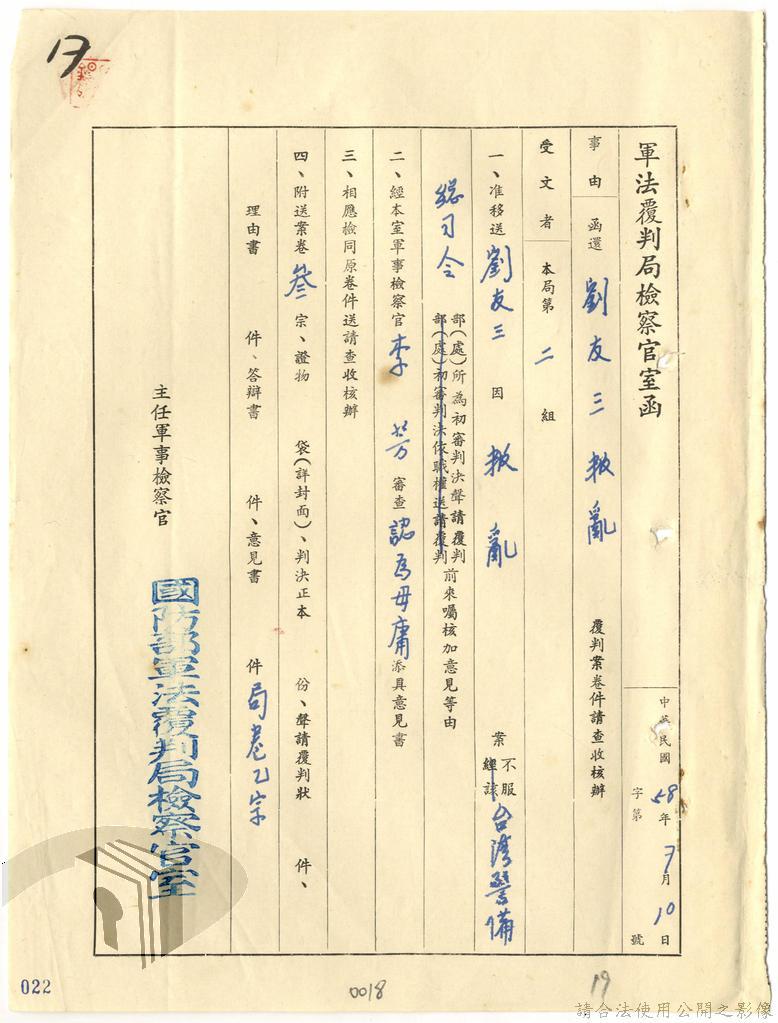 軍法覆判局檢察官室函
中華民國58年7月10日
字第 號
事由 函還劉友三叛亂 覆判案卷件請查收核辦
受文者 本局第二組
一、准移送劉友三因叛亂案 不服 經該 台灣警備
總司令 部(處)所為初審判決聲請覆判 部(處)初審判決依職權送請覆判 前來囑核加意見等由
二、經本室軍事檢察官李芳審查認為毋庸添具意見書
三、相應檢同原卷件送請查收核辦
四、附送案卷叁宗、證物 袋(詳封面)、判決正本 份、聲請覆判狀 件、
理由書 件、答辯書 件、意見書 件 局卷乙宗
主任軍事檢察官
國防部軍法覆判局檢察官室
022
0018
19
請合法使用公開之影像